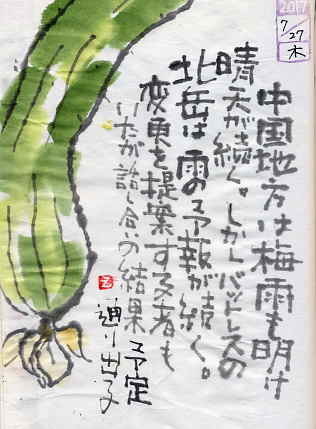 2017
7/27
木
中国地方は梅雨も明け
晴天が続く。しかしバットレスの
北岳は雨の予報が続く。
変更を提案する者も
いたが話し合いの結果予定
通り出発